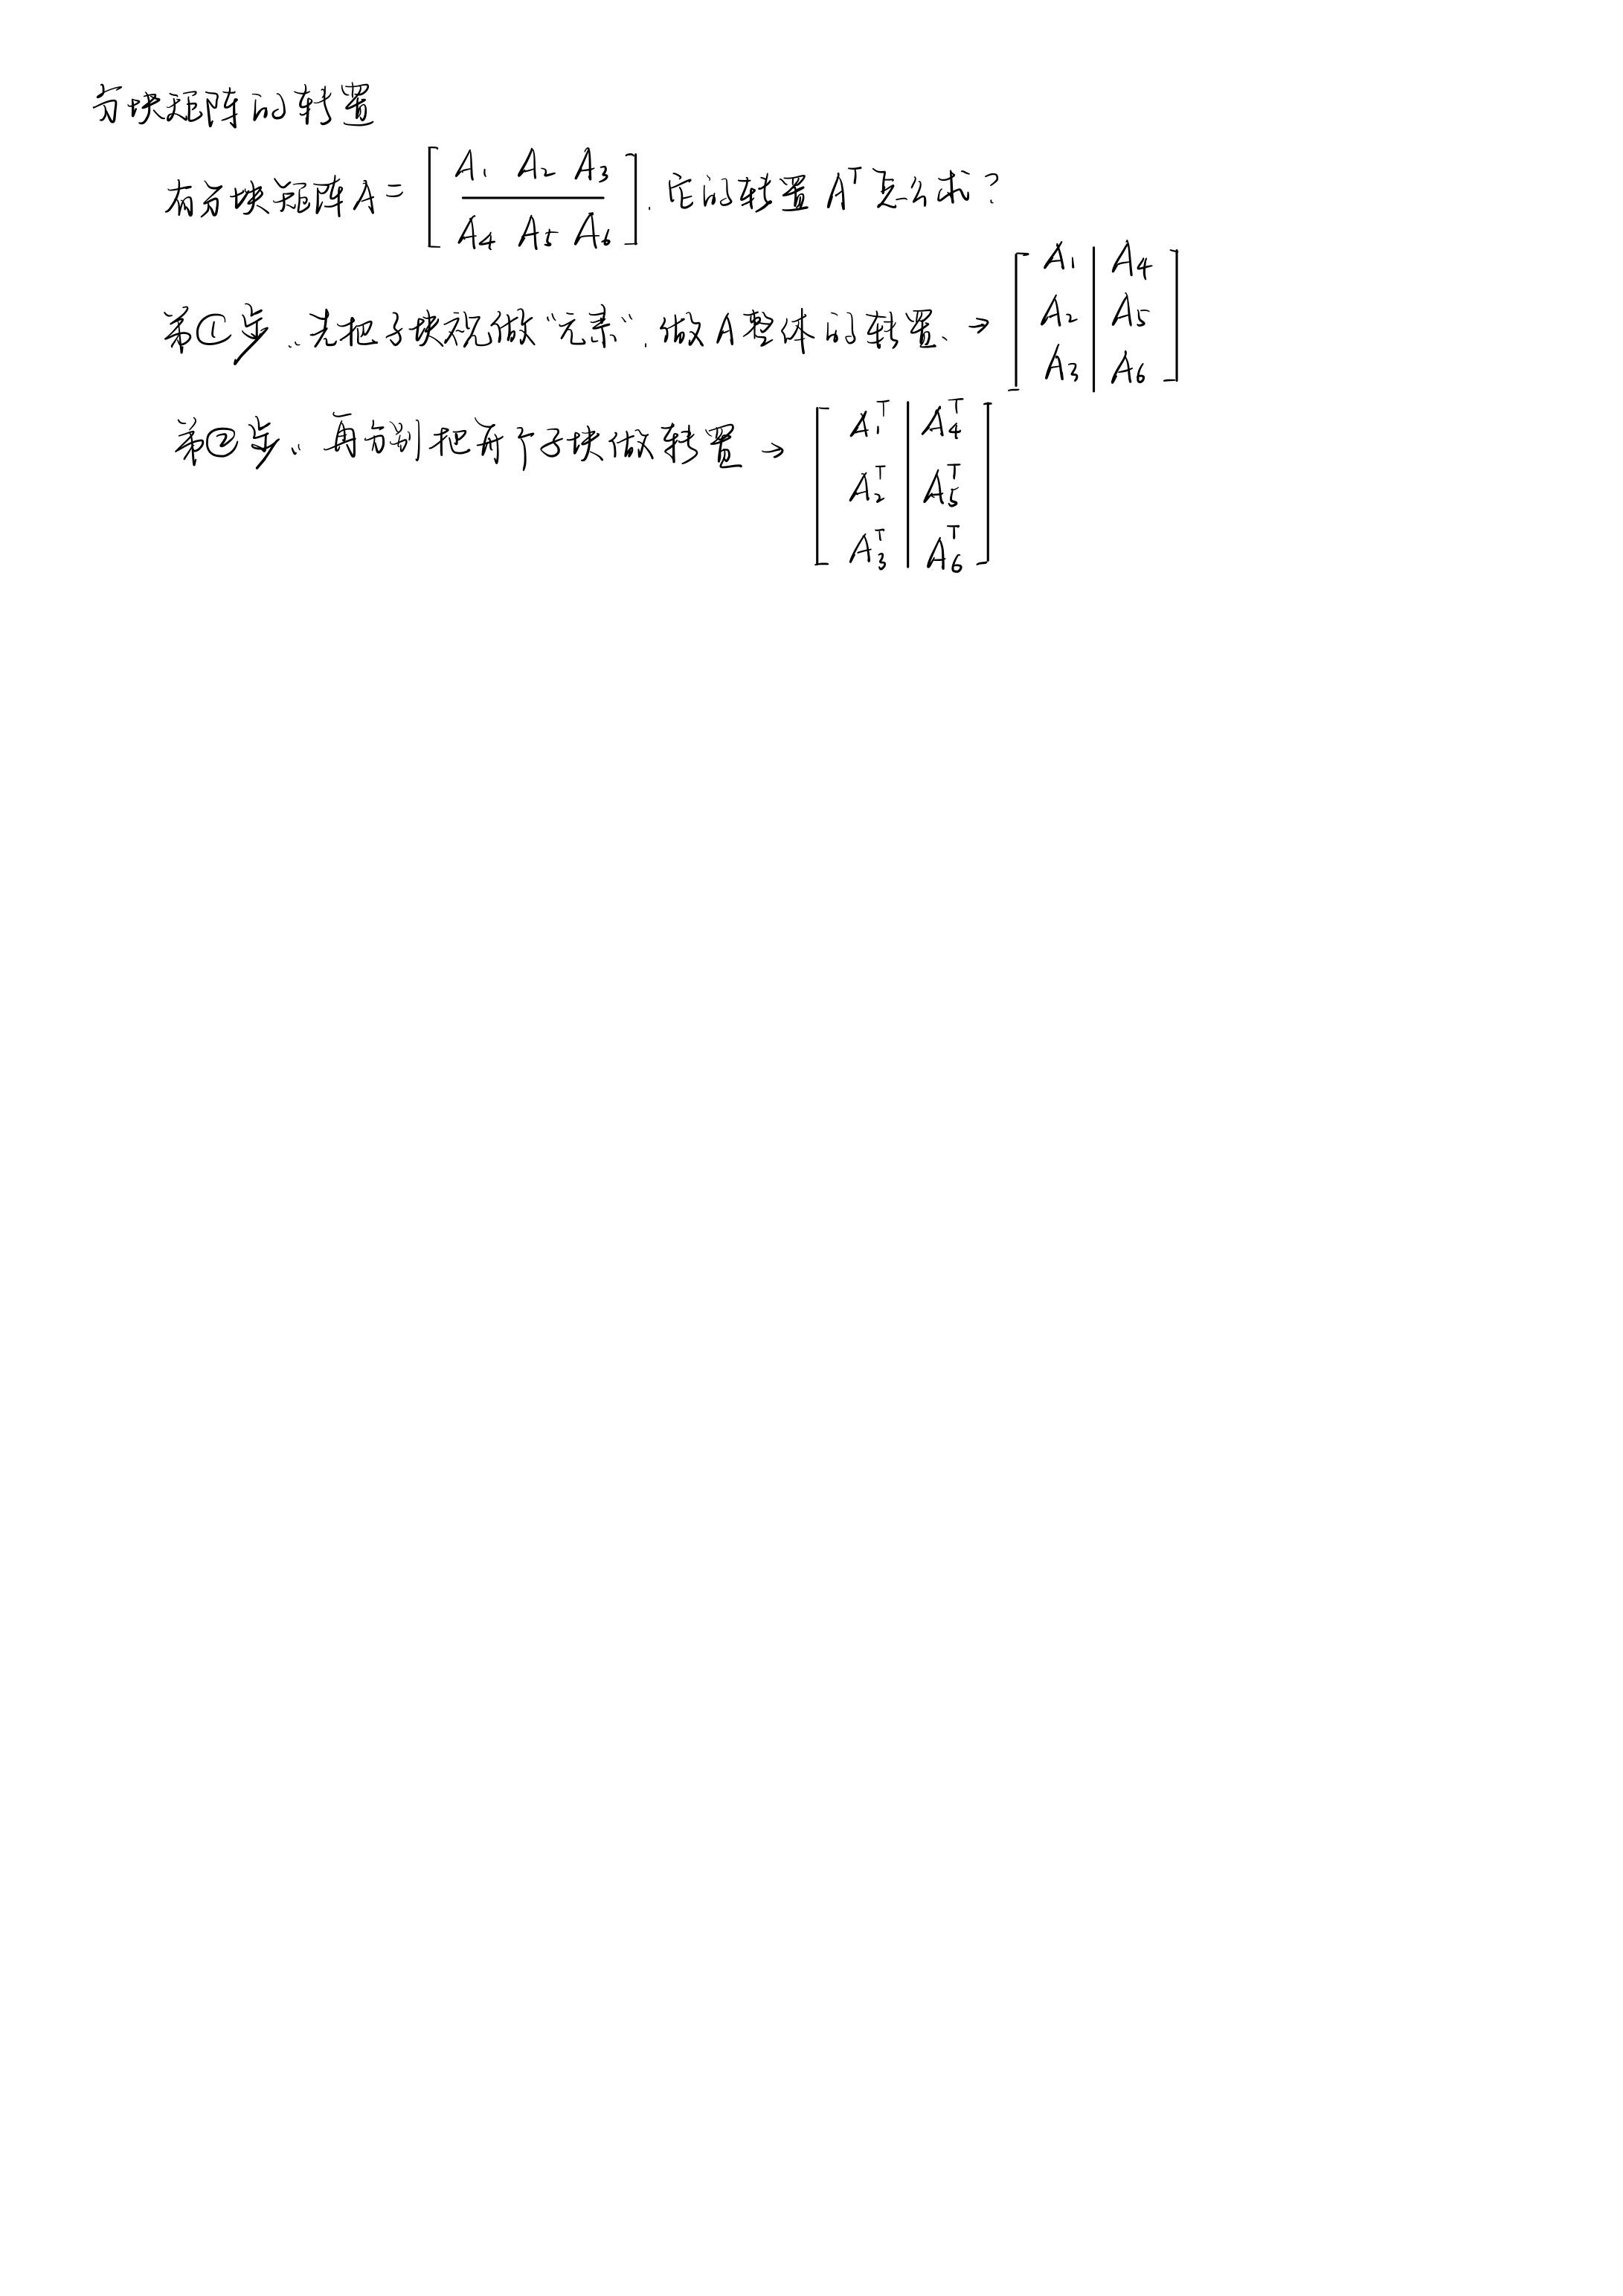 分块矩阵的转置
有分块矩阵 A = [ A₁ A₂ A₃ / A₄ A₅ A₆ ]. 它的转置 Aᵀ 怎么求?
第①步.. 先把子块视做"元素". 做A整体的转置、→ [ A₁ | A₄
A₂ | A₅
A₃ | A₆ ]
第②步.. 再分别把每个子块做转置 → [ A₁ᵀ | A₄ᵀ
A₂ᵀ | A₅ᵀ
A₃ᵀ | A₆ᵀ ]